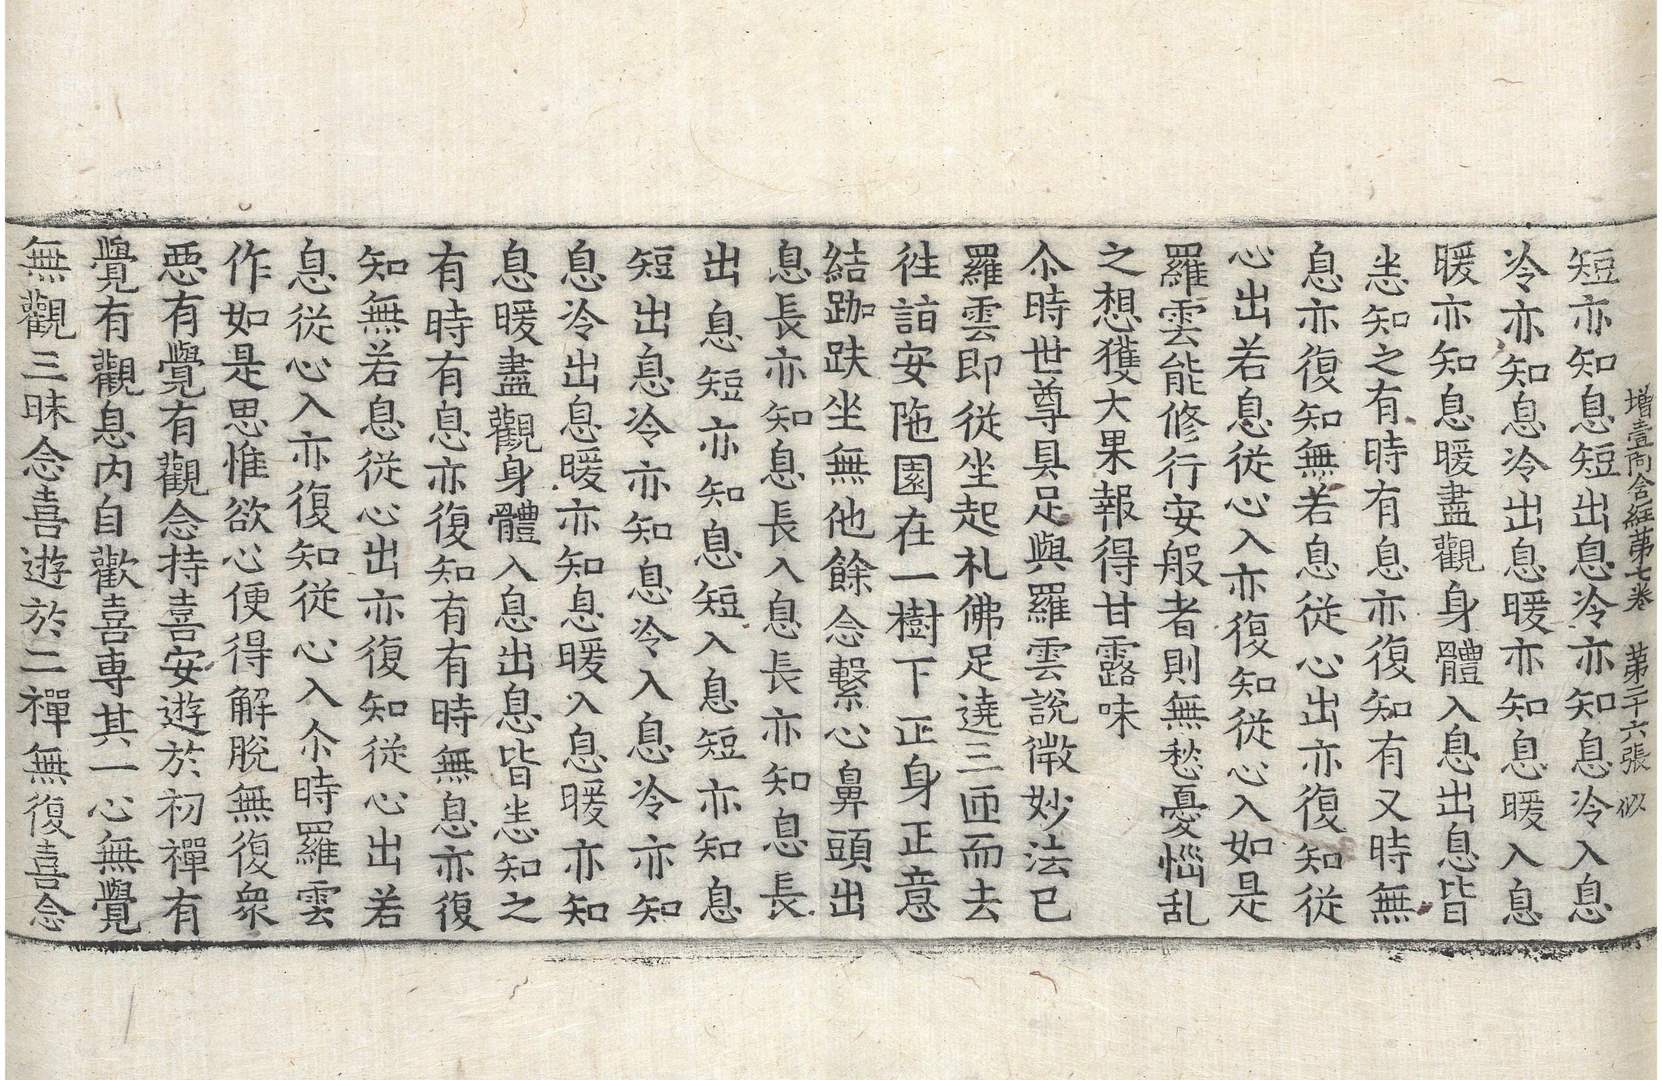 增壹阿含經第七卷 第二十六張 似
短亦知息短出息冷亦知息冷入息
冷亦知息冷出息暖亦知息暖入息
暖亦知息暖盡觀身體入息出息皆
悉知之有時有息亦復知有又時無
息亦復知無若息從心出亦復知從
心出若息從心入亦復知從心入如是
羅雲能修行安般者則無愁憂惱乱
之想獲大果報得甘露味
尒時世尊具足與羅雲說微妙法已
羅雲即從坐起礼佛足遶三匝而去
往詣安陁園在一樹下正身正意
結跏趺坐無他餘念繫心鼻頭出
息長亦知息長入息長亦知息長
出息短亦知息短入息短亦知息
短出息冷亦知息冷入息冷亦知
息冷出息暖亦知息暖入息暖亦知
息暖盡觀身體入息出息皆悉知之
有時有息亦復知有有時無息亦復
知無若息從心出亦復知從心出若
息從心入亦復知從心入尒時羅雲
作如是思惟欲心便得解脫無復衆
惡有覺有觀念持喜安遊於初禪有
覺有觀息內自歡喜專其一心無覺
無觀三昧念喜遊於二禪無復喜念